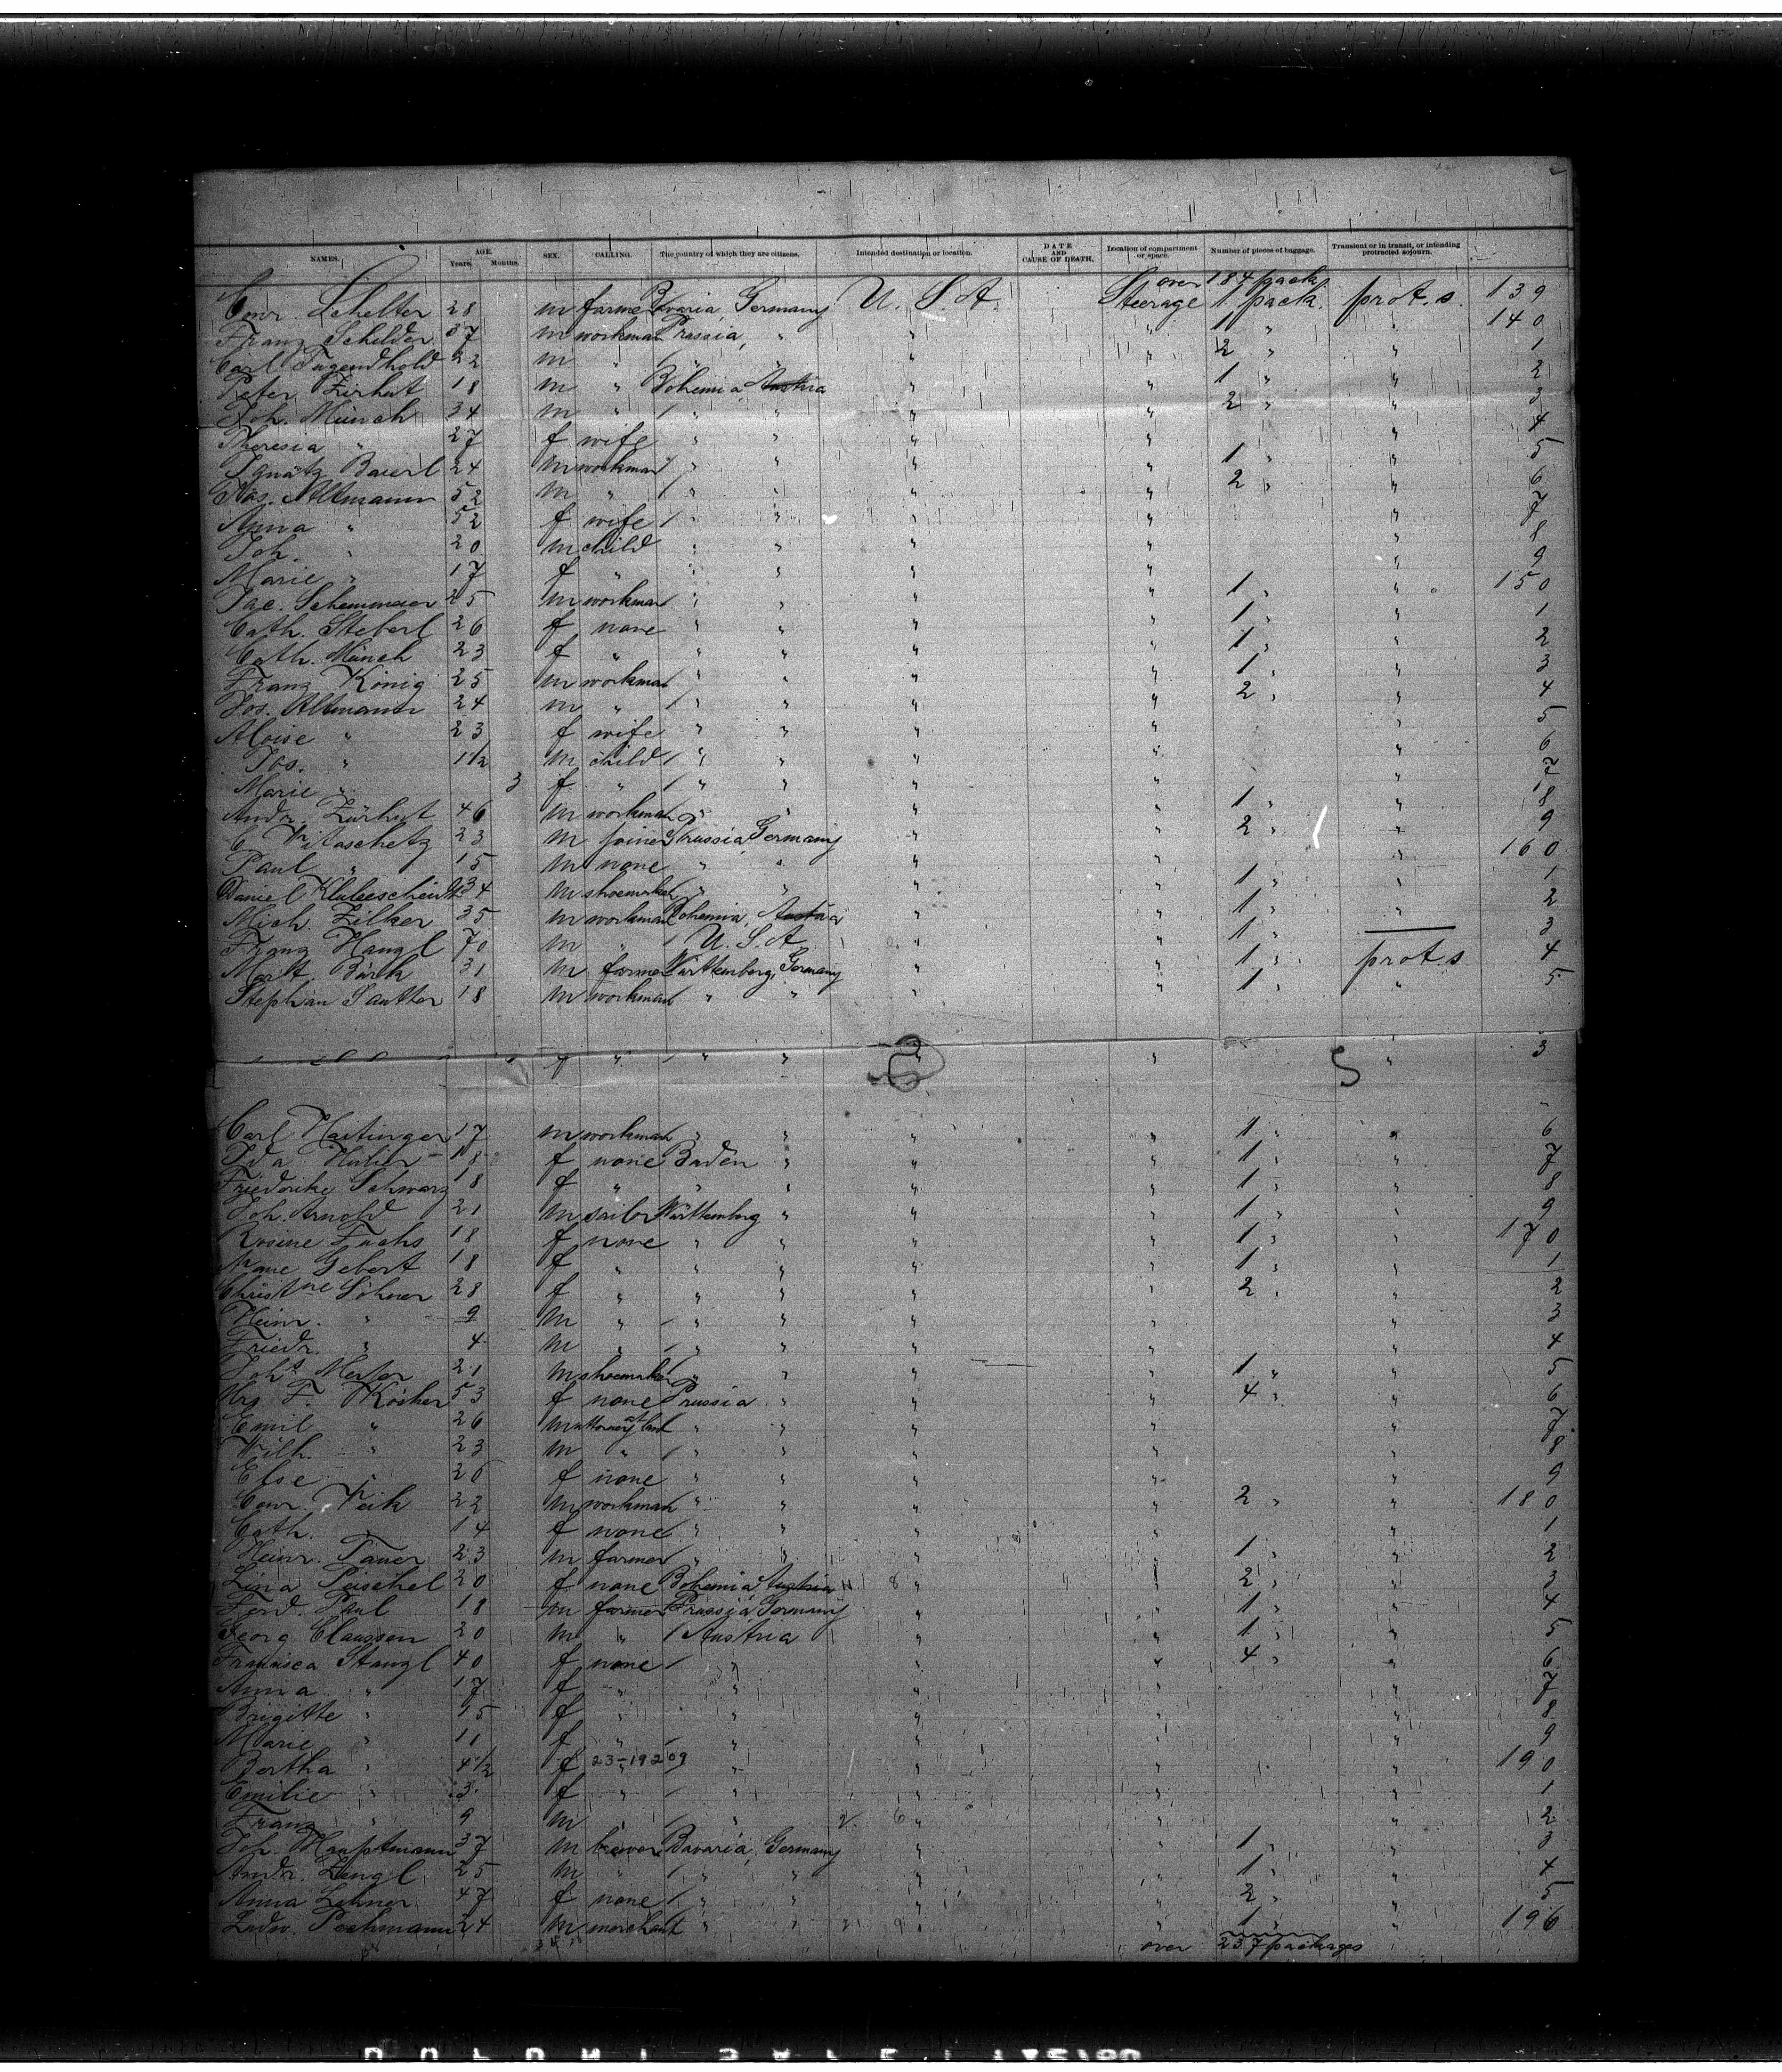 NAMES. AGE. Years. Months. SEX. CALLING. The country of which they are citizens. Intended destination or location. DATE AND CAUSE OF DEATH. Location of compartment or space. Number of pieces of baggage. Transient or in transit, or intending protracted sojourn.
over 184 packs
Conr. Schelter 28 m farmer Bavaria, Germany U. S. A. Steerage 1 pack. prot. s. 139
Franz Schilder 37 m workman Prussia, " " " 1 " " 140
Carl Tugendhold 22 m " " " " " 2 " " 1
Peter Zirhut 18 m " Bohemia, Austria " " 1 " " 2
Joh. Münch 34 m " " " " " 2 " " 3
Theresia " 27 f wife " " " " " 4
Ignatz Baierl 24 m workman " " " " 1 " " 5
Jos. Altmann 52 m " " " " " 2 " " 6
Anna " 52 f wife " " " " " 7
Joh. " 20 m child " " " " " 8
Marie " 17 f " " " " " " 9
Jac. Schemmaier 25 m workman " " " " 1 " " 150
Cath. Steberl 26 f none " " " " 1 " " 1
Cath. Münch 23 f " " " " " 1 " " 2
Franz König 25 m workman " " " " 1 " " 3
Jos. Altmann 24 m " " " " " 2 " " 4
Aloise " 23 f wife " " " " " 5
Jos. " 1 1/2 m child " " " " " 6
Marie " 3 f " " " " " " 7
Andr. Zürhut 46 m workman " " " " 1 " " 8
C. Witaschetz 23 m joiner Prussia, Germany " " 2 " " 9
Paul " 15 m none " " " " " 160
Daniel 34 m shoemaker " " " " 1 " " 1
Mich. Zilker 35 m workman Bohemia, Austria " " 1 " " 2
Franz Hangl 70 m " U. S. A. " " 1 " — 3
Mart. Bürk 31 m farmer Württemberg, Germany " " 1 " prot. s. 4
Stephan Sautter 18 m workman " " " " 1 " " 5
f " " " " " " 3
5
Carl Hartinger 17 m workman " " " " 1 " " 6
Ida Huber 18 f none Baden " " " 1 " " 7
Friederike Schwarz 18 f " " " " " 1 " " 8
Joh. Arnold 21 m sailor Württemberg " " " 1 " " 9
Rosine Fuchs 18 f none " " " " 1 " " 170
Marie Gebert 18 f " " " " " 1 " " 1
Christine Söhner 28 f " " " " " 2 " " 2
Heinr. " 9 m " " " " " " 3
Friedr. " 4 m " " " " " " 4
Johs Mester 21 m shoemaker " " " " 1 " " 5
Mrs F. Köcher 53 f none Prussia " " " 4 " " 6
Emil " 26 m attorney at law " " " " " 7
Wilh. " 23 m " " " " " " 8
Else " 20 f none " " " " " 9
Conr. Veik 22 m workman " " " " 2 " " 180
Cath. " 14 f none " " " " " 1
Heinr. Tauer 23 m farmer " " " " 1 " " 2
Lina Peischel 20 f none Bohemia, Austria " " 2 " " 3
Ferd. Paul 18 m farmer Prussia, Germany " " 1 " " 4
Georg Claussen 20 m " Austria " " 1 " " 5
Francisca Stangl 40 f none " " " 4 " " 6
Anna " 17 f " " " " " 7
Brigitte " 15 f " " " " " 8
Marie " 11 f " " " " " 9
Bertha " 4 1/2 f 23-19209 " " " " 190
Emilie " 3 f " " " " " 1
Franz " 9 m " " " " " 2
Joh. Hauptmann 37 m brewer Bavaria, Germany " " 1 " " 3
Andr. Zengl 25 m " " " " " 1 " " 4
Anna Lehner 47 f none " " " " 2 " " 5
Ludw. Pechmann 24 m merchant " " " " 1 " " 196
over 237 packages